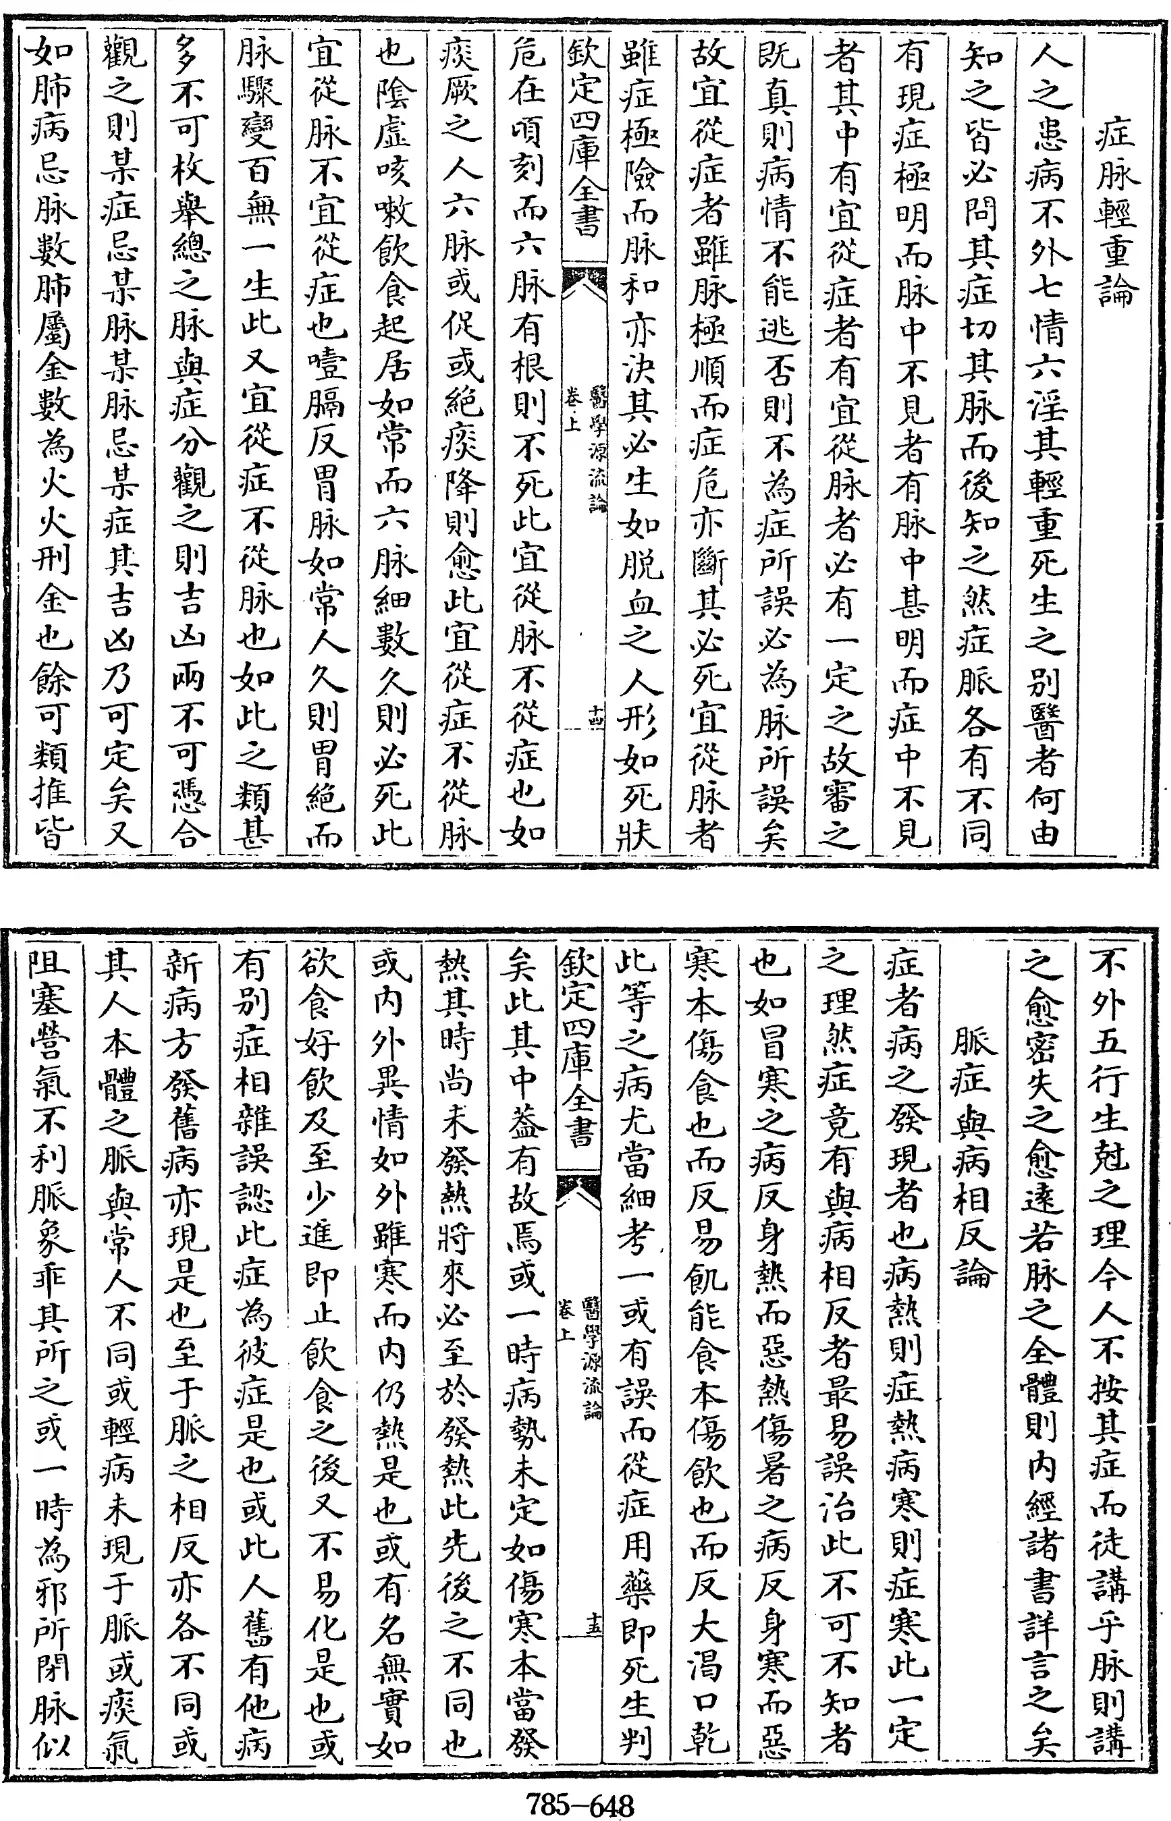 症脉輕重論
人之患病不外七情六淫其輕重死生之别醫者何由
知之皆必問其症切其脉而後知之然症脈各有不同
有現症極明而脉中不見者有脉中甚明而症中不見
者其中有宜從症者有宜從脉者必有一定之故審之
既真則病情不能逃否則不為症所誤必為脉所誤矣
故宜從症者雖脉極順而症危亦斷其必死宜從脉者
雖症極險而脉和亦決其必生如脱血之人形如死狀
欽定四庫全書
醫學源流論
卷上
十四
危在頃刻而六脉有根則不死此宜從脉不從症也如
痰厥之人六脉或促或絶痰降則愈此宜從症不從脉
也陰虛咳嗽飲食起居如常而六脉細數久則必死此
宜從脉不宜從症也噎膈反胃脉如常人久則胃絶而
脉驟變百無一生此又宜從症不從脉也如此之類甚
多不可枚舉總之脉與症分觀之則吉凶兩不可憑合
觀之則某症忌某脉某脉忌某症其吉凶乃可定矣又
如肺病忌脉數肺屬金數為火火刑金也餘可類推皆
不外五行生尅之理今人不按其症而徒講乎脉則講
之愈密失之愈遠若脉之全體則内經諸書詳言之矣
脈症與病相反論
症者病之發現者也病熱則症熱病寒則症寒此一定
之理然症竟有與病相反者最易誤治此不可不知者
也如冒寒之病反身熱而惡熱傷暑之病反身寒而惡
寒本傷食也而反易飢能食本傷飲也而反大渴口乾
此等之病尤當細考一或有誤而從症用藥即死生判
欽定四庫全書
醫學源流論
卷上
十五
矣此其中葢有故焉或一時病勢未定如傷寒本當發
熱其時尚未發熱將來必至於發熱此先後之不同也
或内外異情如外雖寒而内仍熱是也或有名無實如
欲食好飲及至少進即止飲食之後又不易化是也或
有别症相雜誤認此症為彼症是也或此人舊有他病
新病方發舊病亦現是也至于脈之相反亦各不同或
其人本體之脈與常人不同或輕病未現于脈或痰氣
阻塞營氣不利脈象乖其所之或一時為邪所閉脉似
785-648